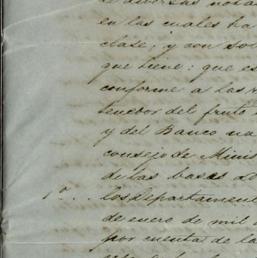 de diversas nota
en las cuales ha
clase; y con sol
que tiene: que es
conforme a las r
tenedor del fruto
y del Banco na
consejo de Minis
de las bases de
1º... los Departament
de enero de mil
por cuenta de la